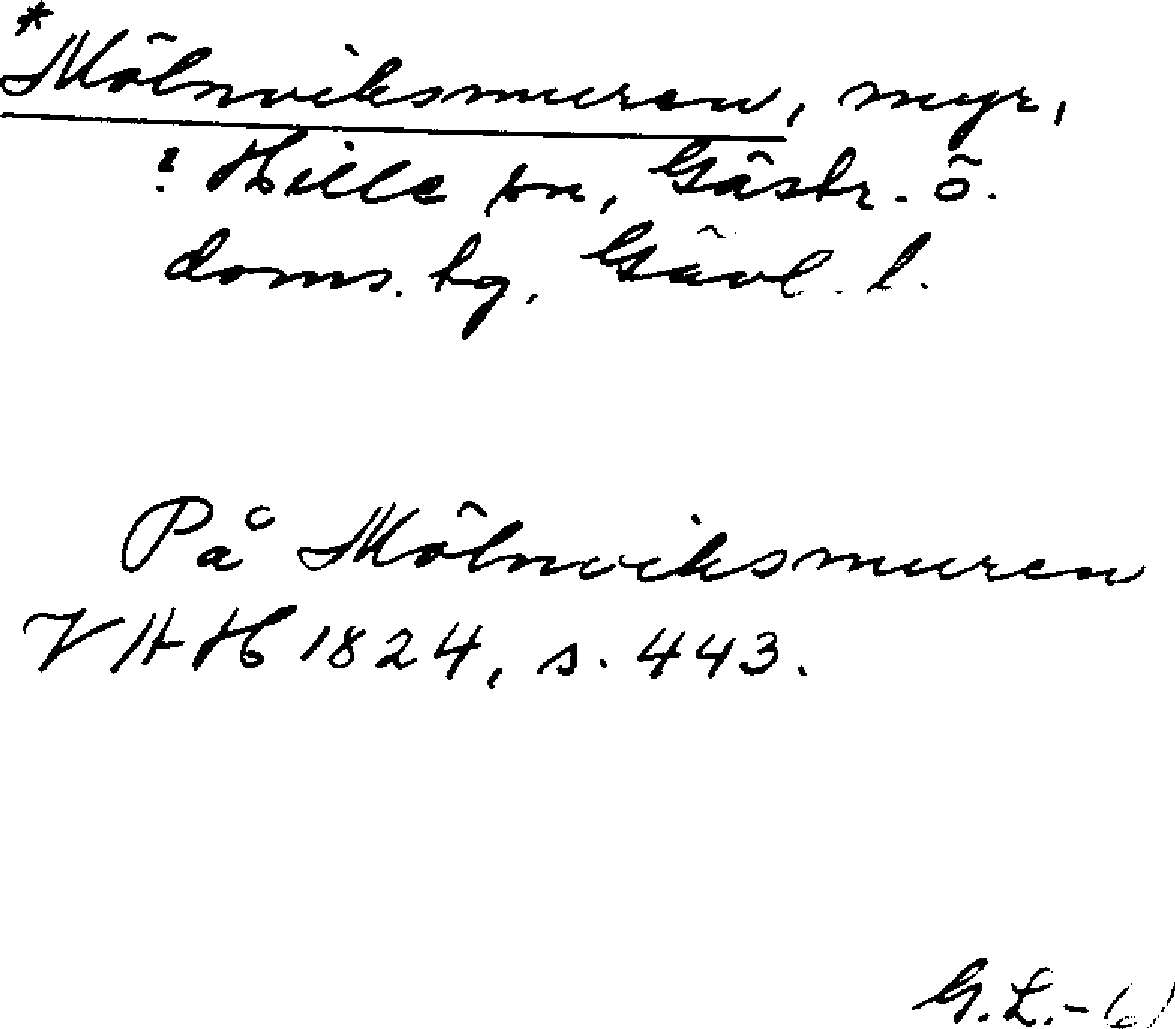 *Mölnviksmuren, myr,
? Hille sn, Gästr. ö.
doms. hg, Gävl. l.
På Mölnviksmuren
VHH 1824, s. 443.
G.L.-61